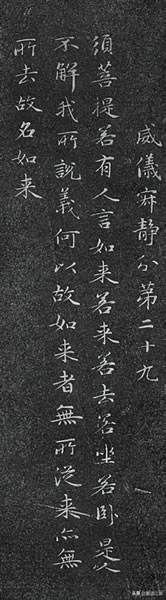 威儀寂静分第二十九
須菩提若有人言如来若来若去若坐若卧是人
不解我所說義何以故如来者無所從来亦無
所去故名如来